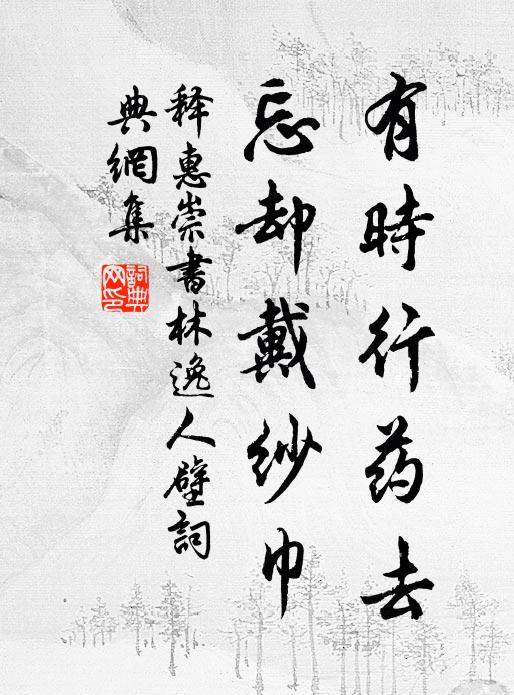 有時行药去
忘却戴纱巾
释惠崇書林逸人壁詞
典網集
詞典网印